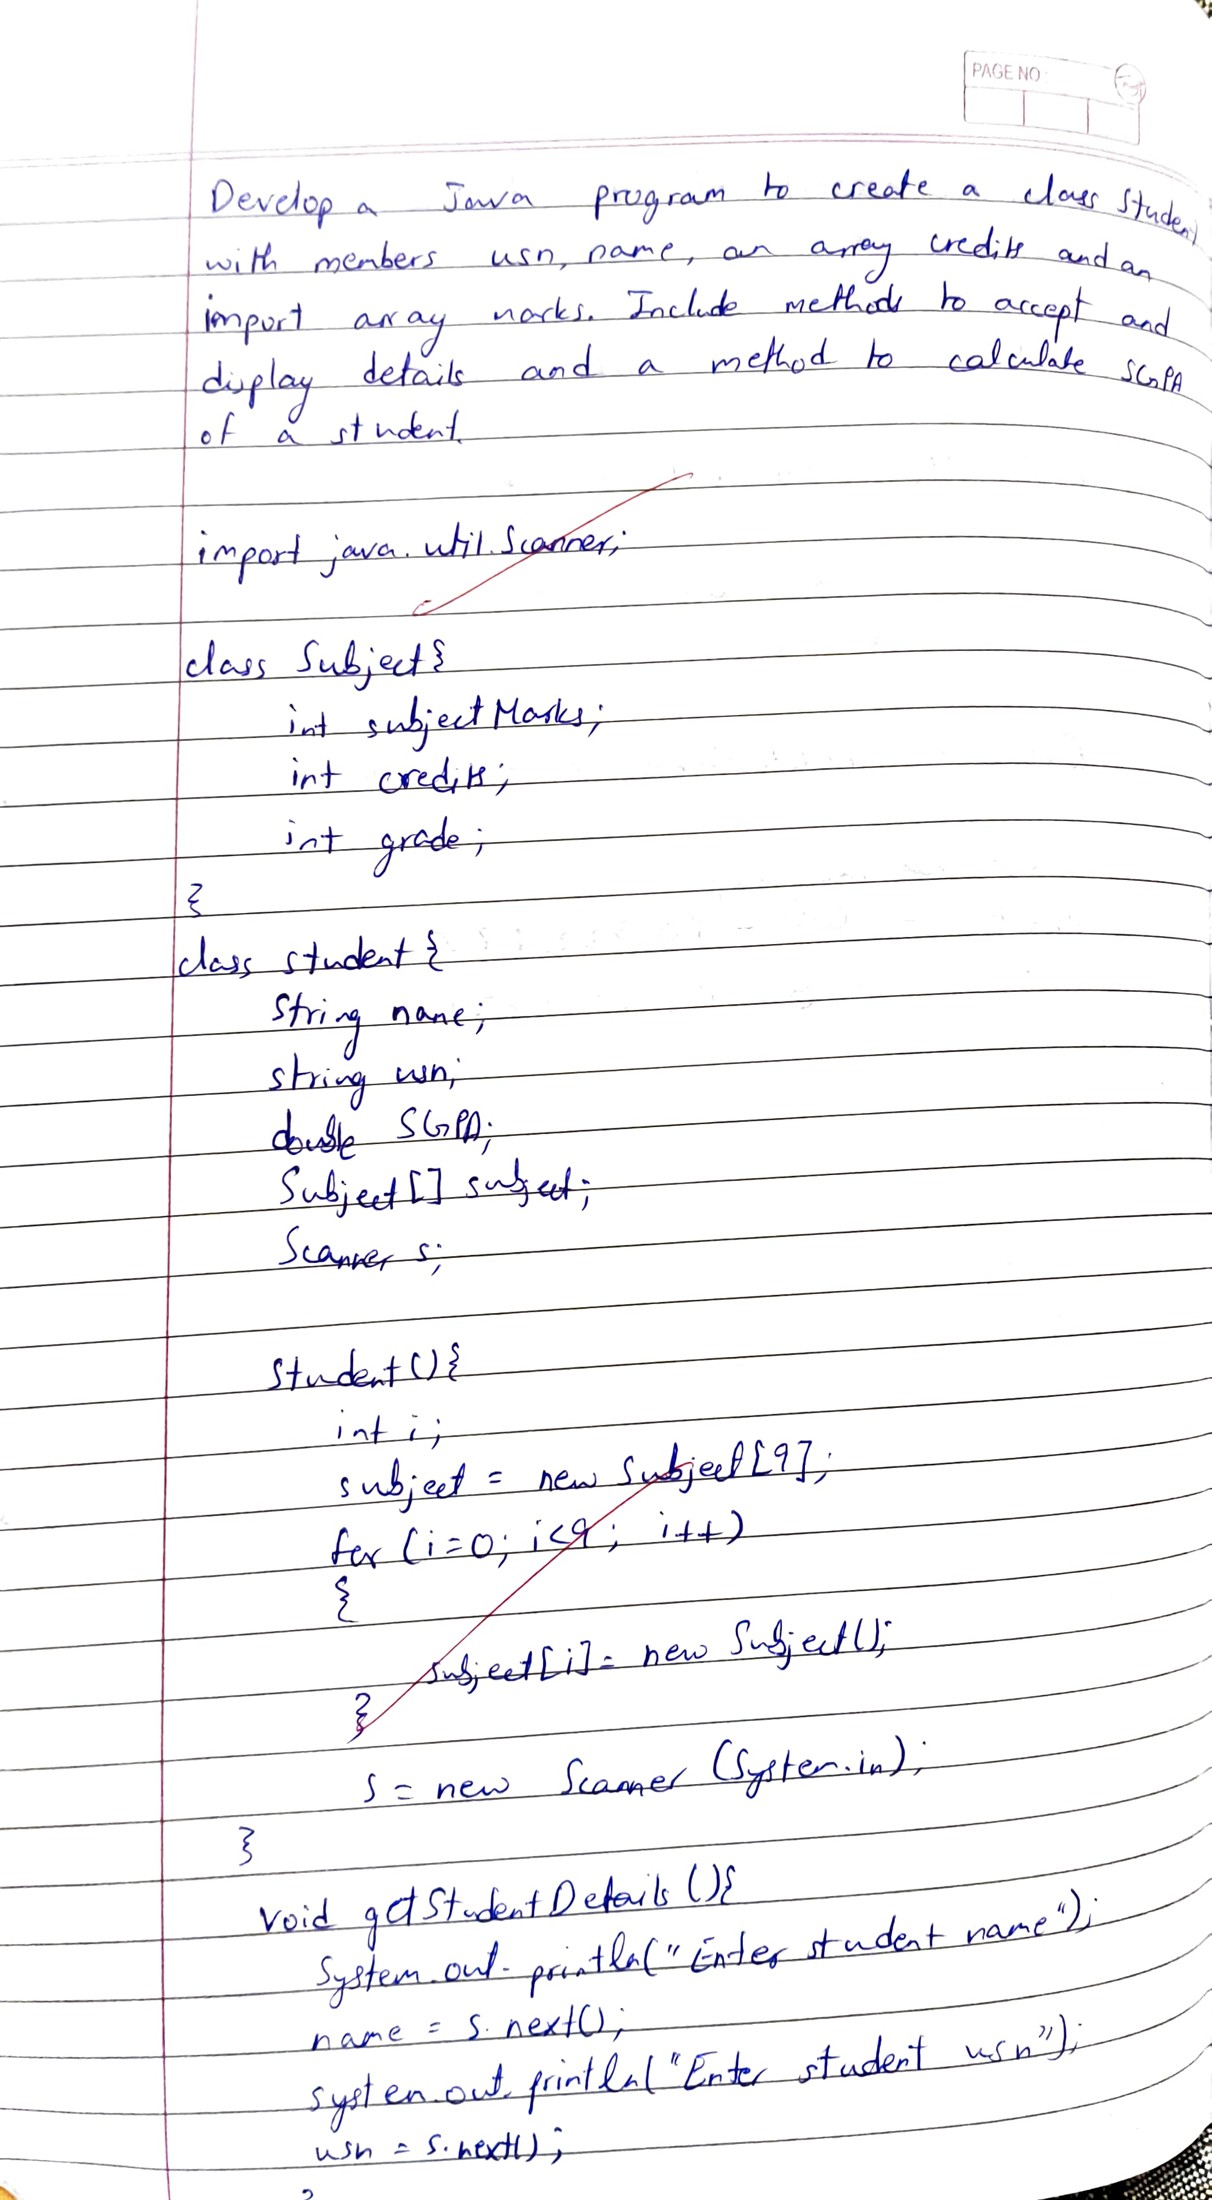 PAGE NO:
Develop a Java program to create a class Student
with members usn, name, an array credits and an
import array marks. Include methods to accept and
display details and a method to calculate SGPA
of a student.
import java.util.Scanner;
class Subject{
int subjectMarks;
int credits;
int grade;
}
class student {
String name;
string usn;
double SGPA;
Subject[] subject;
Scanner s;
Student(){
int i;
subject = new Subject[9];
for (i=0; i<9; i++)
{
subject[i]= new Subject();
}
s = new Scanner (System.in);
}
void getStudentDetails (){
System.out.println("Enter student name");
name = s.next();
system.out.println("Enter student usn");
usn = s.next();